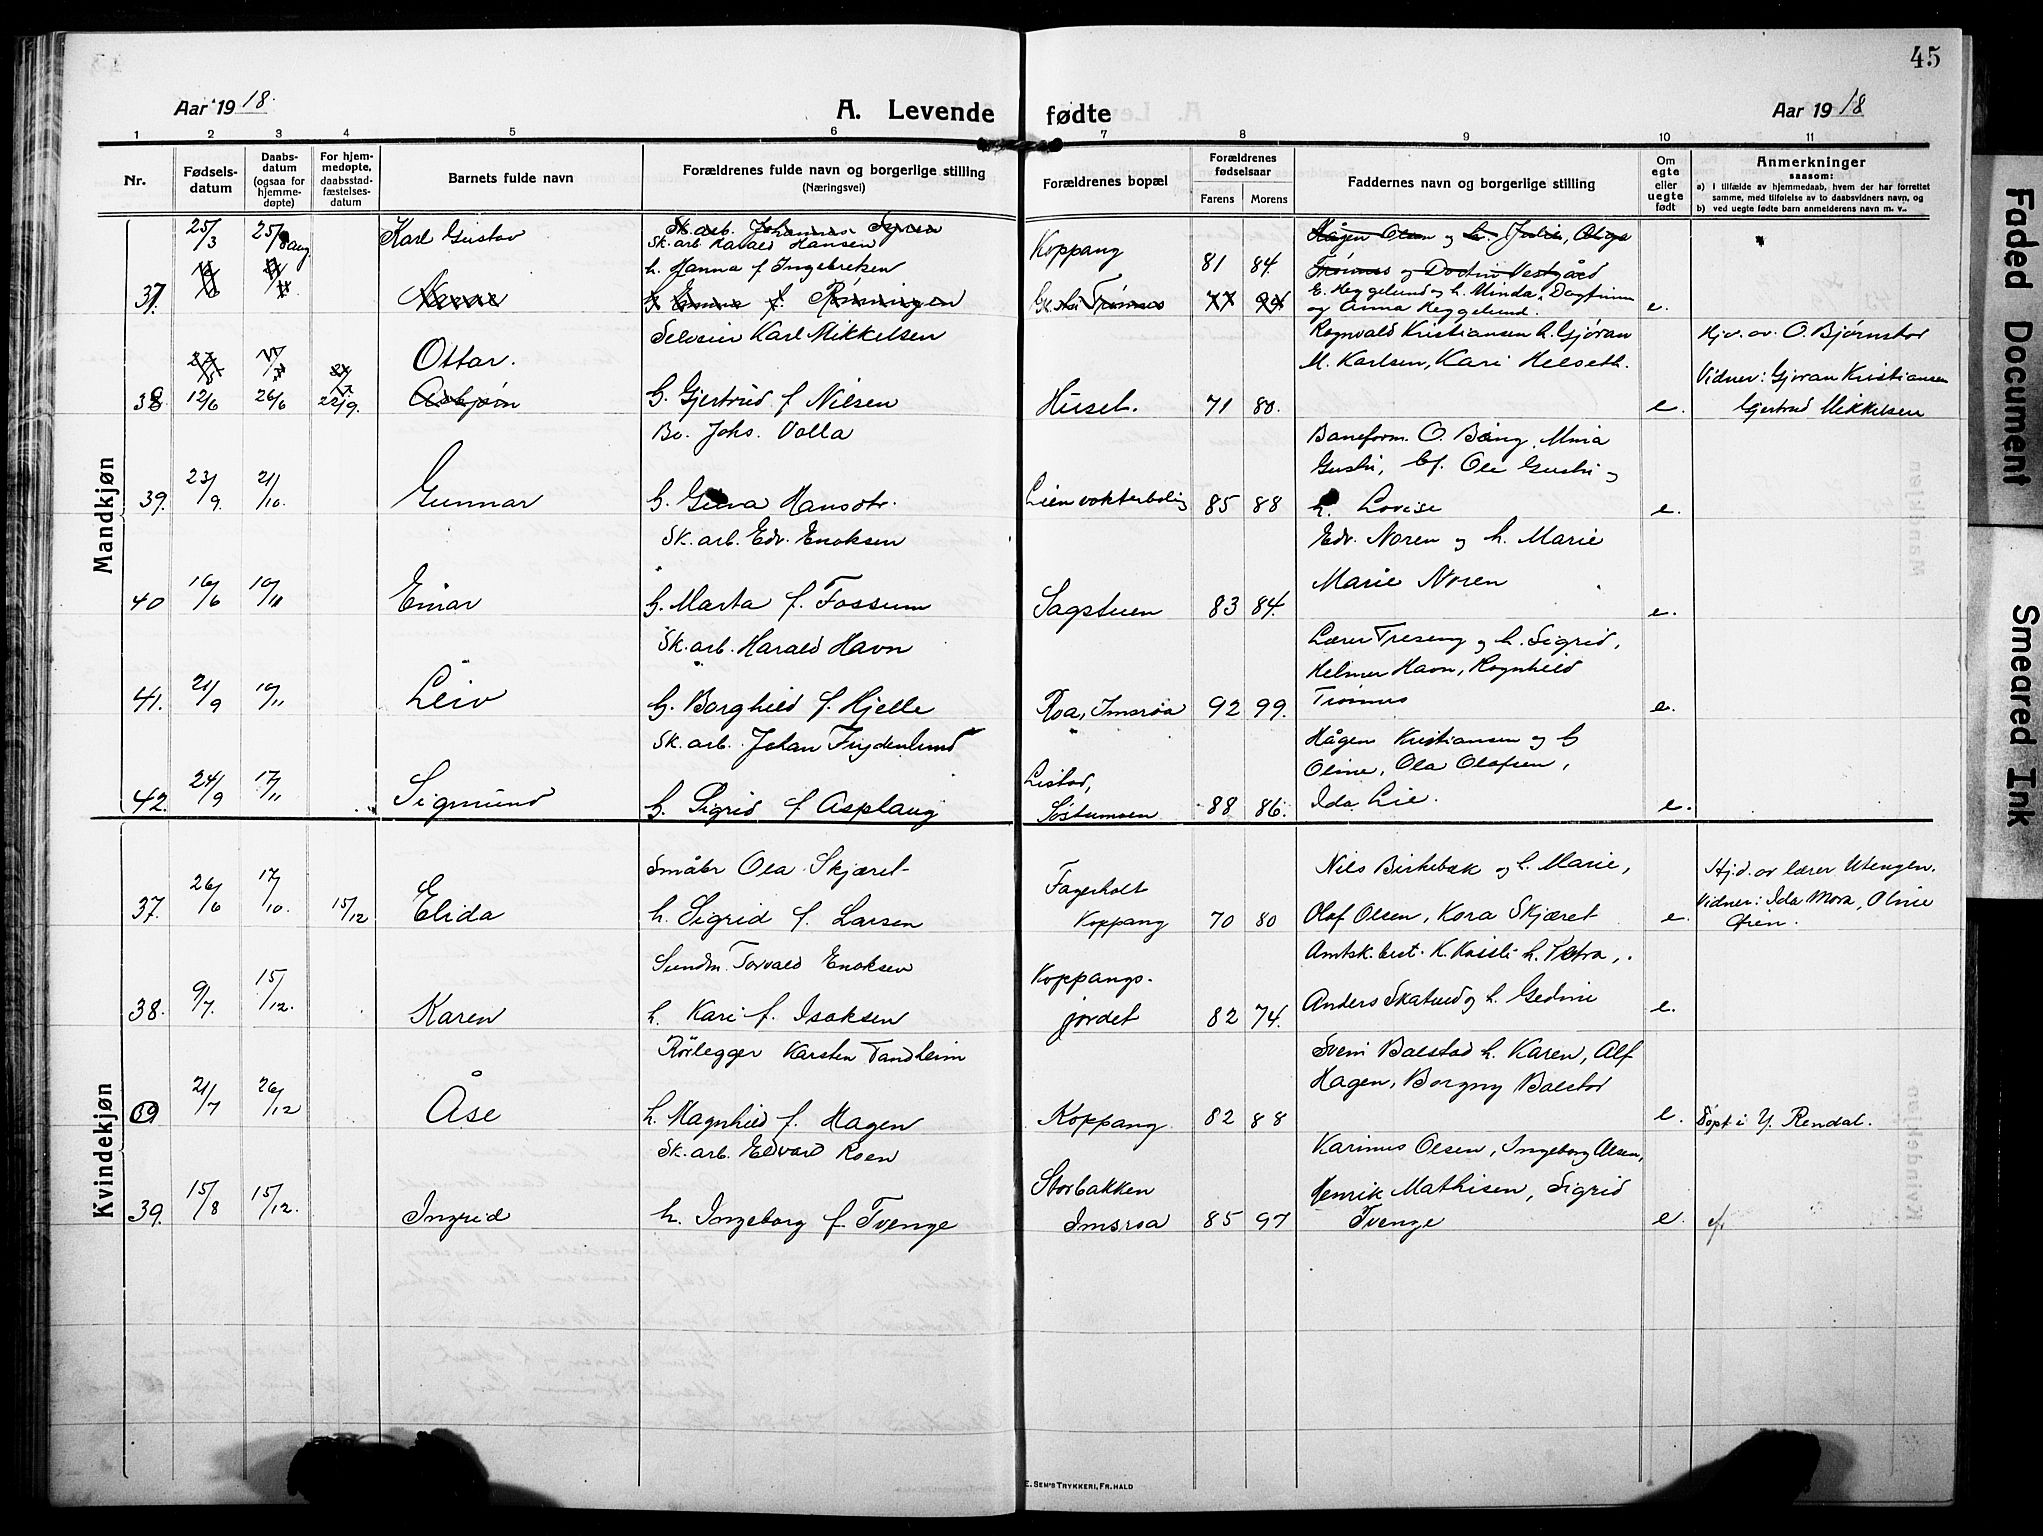 45
Aar 1918.
A. Levende fødte
Aar 1918
1 2 3 4 5 6 7 8 9 10 11
Nr.
Fødsels-
datum
Daabs-
datum
(ogsaa for
hjemme-
døpte)
For hjem-
medøpte,
daabsstad-
fæstelses-
datum
Barnets fulde navn
Forældrenes fulde navn og borgerlige stilling
(Næringsvei)
Forældrenes bopæl
Forældrenes
fødselsaar
Farens Morens
Faddernes navn og borgerlige stilling
Om
egte
eller
uegte
født
Anmerkninger
saasom:
a) i tilfælde av hjemmedaab, hvem der har forrettet
samme, med tilføielse av to daabsvidners navn, og
b) ved uegte fødte barn anmelderens navn m. v.
Mandkjøn
25/3 25/8 aug Karl Gustav
Sk. arb. Johannes
Sk. arb Harald Hansen
h. Hanna f. Ingebretsen
Koppang 81 84.
Hågen Olsen og h. Julie,
Trønnes og Vestgård
37. f. Rønningen
Trønnes 77
E. Heggelund og h. Minda, Dagfinn
og Anna Heggelund. e.
Selveier Karl Mikkelsen
Rognvald Kristiansen h. Gjøran
M. Karlsen, Kari Helseth.
Hjd. av. O. Bjørnstad
Vidner: Gjøran Kristiansen
Gjertrud Mikkelsen
Ottar.
38 12/6 26/6 22/9. Asbjøn
G. Gjertrud f Nilsen
Huset. 71 80. e.
Bv. Johs. Volla
Baneform. O. Bang, Mina
Gushi, Cf. Ole Gushi og
39. 23/9. 21/10. Gunnar
G. Gina Hansdtr.
Lien vokterbolig 85 88
h. Lovise e.
Sk. arb. Edv. Enoksen
Edv. Noren og h. Marie
Marie Noren
40 16/6 10/11 Einar
G. Marta f. Fossum
Sagstuen 83 84. e.
Sk. arb. Harald Havn
Lærer Treseng og h. Sigrid,
Helmer Havn, Rognheid
Trønnes
41. 21/9 10/11 Leiv
G. Borghild f. Hjelle
Roa, Imsroa 92 99. e.
Sk. arb. Johan Frydenlund
Hågen Kristiansen og G
Oline, Ola Olafsen,
Ida Lie.
42. 24/9 17/11 Sigmund
G. Sigrid f Asplaug
Listad,
Søstumoen 88 86. e.
Kvindekjøn
Småbr Ola Skjæret
Nils Birkebæk og h. Marie,
Hjd. av lærer Utengen.
37. 26/6 17/10. 15/12 Elida
h. Sigrid f. Larsen
Fagerholt
Koppang 70 80
Olof Olsen, Kora Skjæret e.
Vidner: Ida Mora, Oline
Øien.
Sundm. Torvald Enoksen
Amtsk. best. K. Kassli h. Petra,
38. 9/7. 15/12. Karen
h. Kari f. Isaksen
Koppangs-
jordet 82 74.
Anders Skatrud og h. Gedine e.
Rørlegger Karsten Tandheim
Svein Balstad h. Karen, Alf
Hagen, Borgny Balstad
39 21/7 26/12 Åse
h. Magnhild f. Hagen
Koppang 82 88 e.
Døpt i Y. Rendal.
Sk. arb. Edvard Roen
Karinus Olsen, Ingeborg Olsen,
Henrik Mathisen, Sigrid
Tvenge
39. 15/8 15/12. Ingrid
h. Ingeborg f. Tvenge
Storbakken
Imsroa 85 97 e.
E. SEM'S TRYKKERI, FR.HALD
Faded Document
Smeared Ink